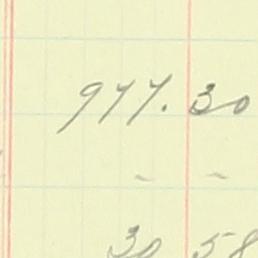 977.30
- -
30 58